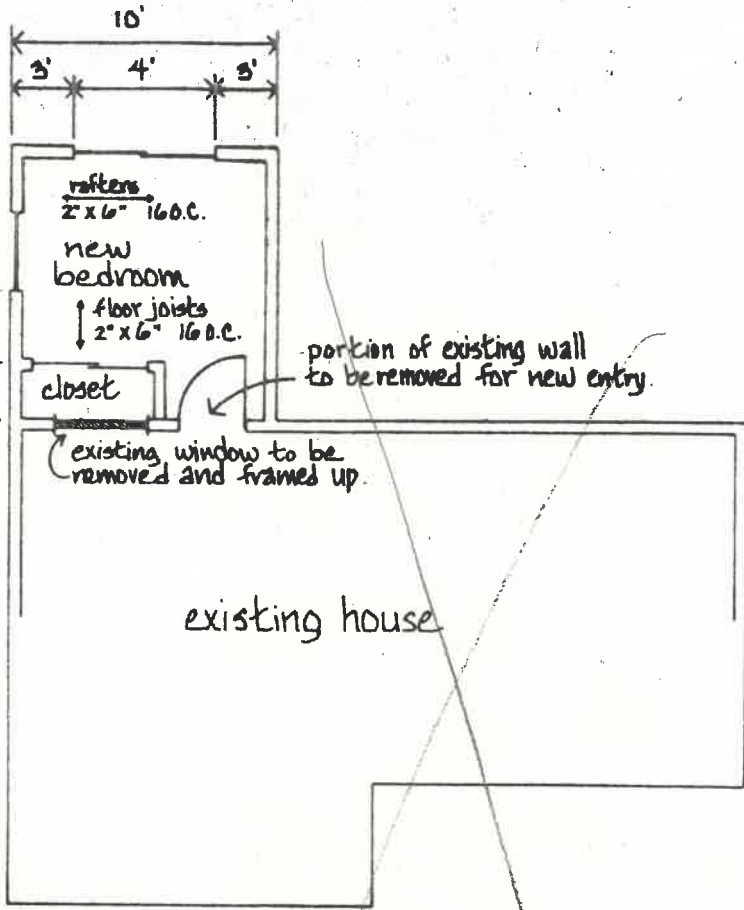 10'
3' 4' 3'
rafters
2" x 6" 16 O.C.
new
bedroom
floor joists
2" x 6" 16 O.C.
closet
portion of existing wall
to be removed for new entry.
existing window to be
removed and framed up.
existing house